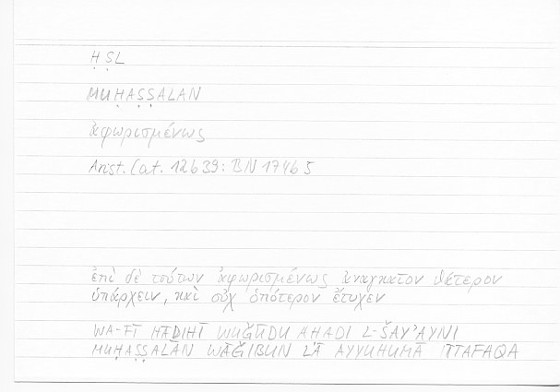 ḤṢL
MUḤAṢṢALAN
ἀφωρισμένως
Arist. Cat. 12b39: BN 174b5
ἐπὶ δὲ τούτων ἀφωρισμένως ἀναγκαῖον θάτερον
ὑπάρχειν, καὶ οὐχ ὁπότερον ἔτυχεν
WA-FĪ HĀḎIHĪ WUǦŪDU AḤADI L-ŠAYʾAYNI
MUḤAṢṢALAN WĀǦIBUN LĀ AYYUHUMĀ TTAFAQA